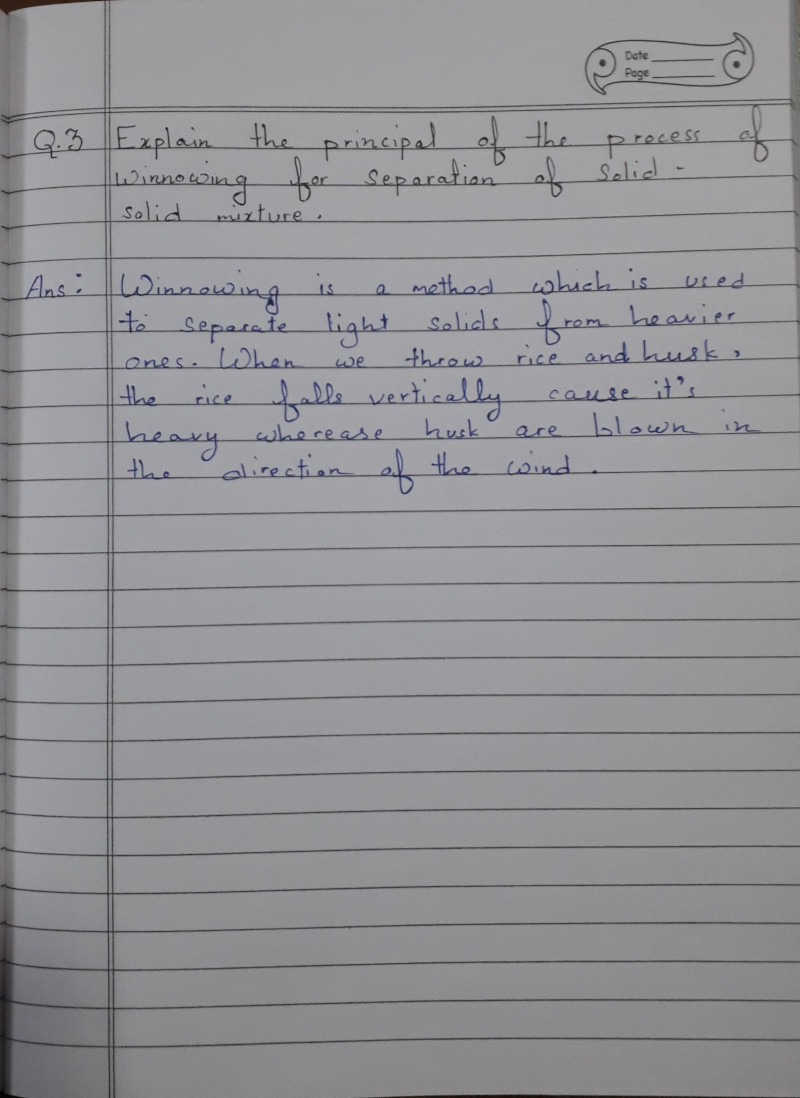 Date
Page
Q.3 Explain the principal of the process of
winnowing for separation of solid -
solid mixture.
Ans: Winnowing is a method which is used
to separate light solids from heavier
ones. When we throw rice and husk,
the rice falls vertically cause it's
heavy wherease husk are blown in
the direction of the wind.